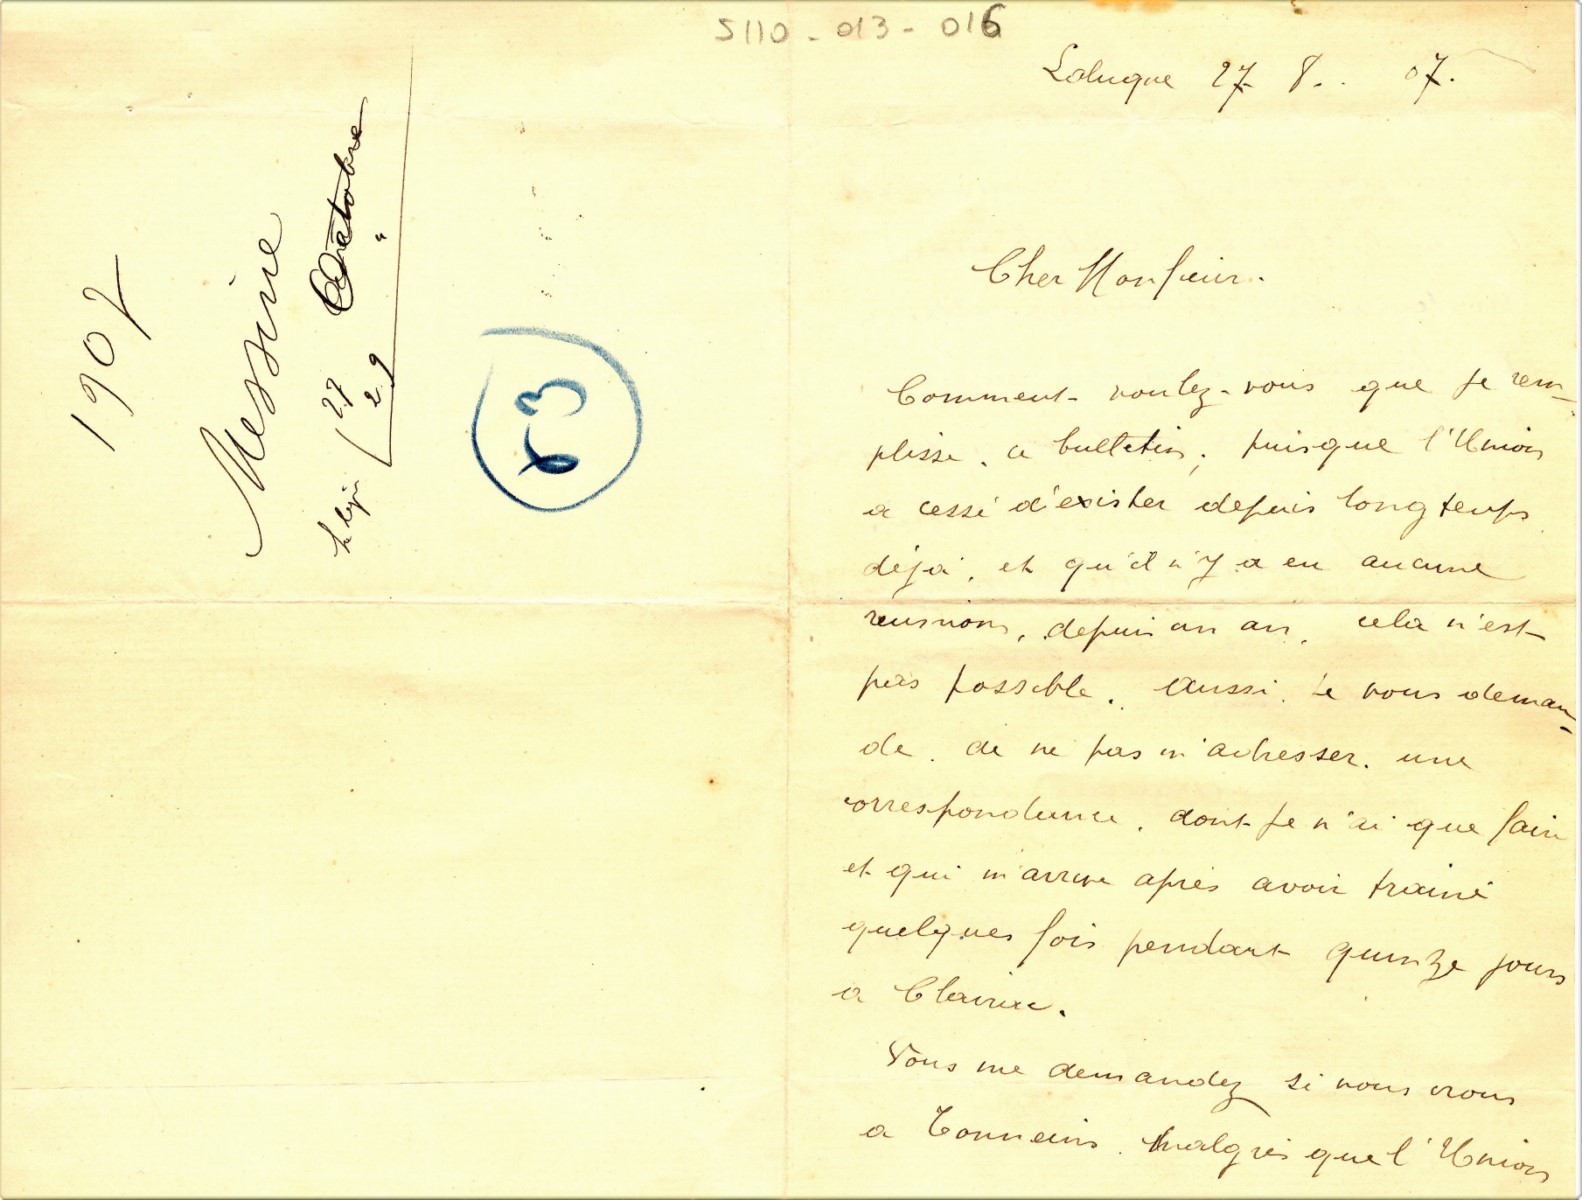 5110-013-016
1907
Messine
27 Octobre
29 "
63
27 8.. 07.
Cher Monsieur.
Comment voulez-vous que je rem-
plisse, ce bulletin, puisque l'Union
a cessé d'exister depuis longtemps
déjà, et qu'il n'y a eu aucune
reunions, depuis un an, cela n'est
pas possible. Aussi, je vous deman-
de. de ne pas m'adresser. une
correspondance, dont je n'ai que faire
et qui m'arrive après avoir trainé
quelques fois pendant quinze jours
a Clairac.
Vous me demandez si nous irons
a Tonneins. Malgrés que l'Union